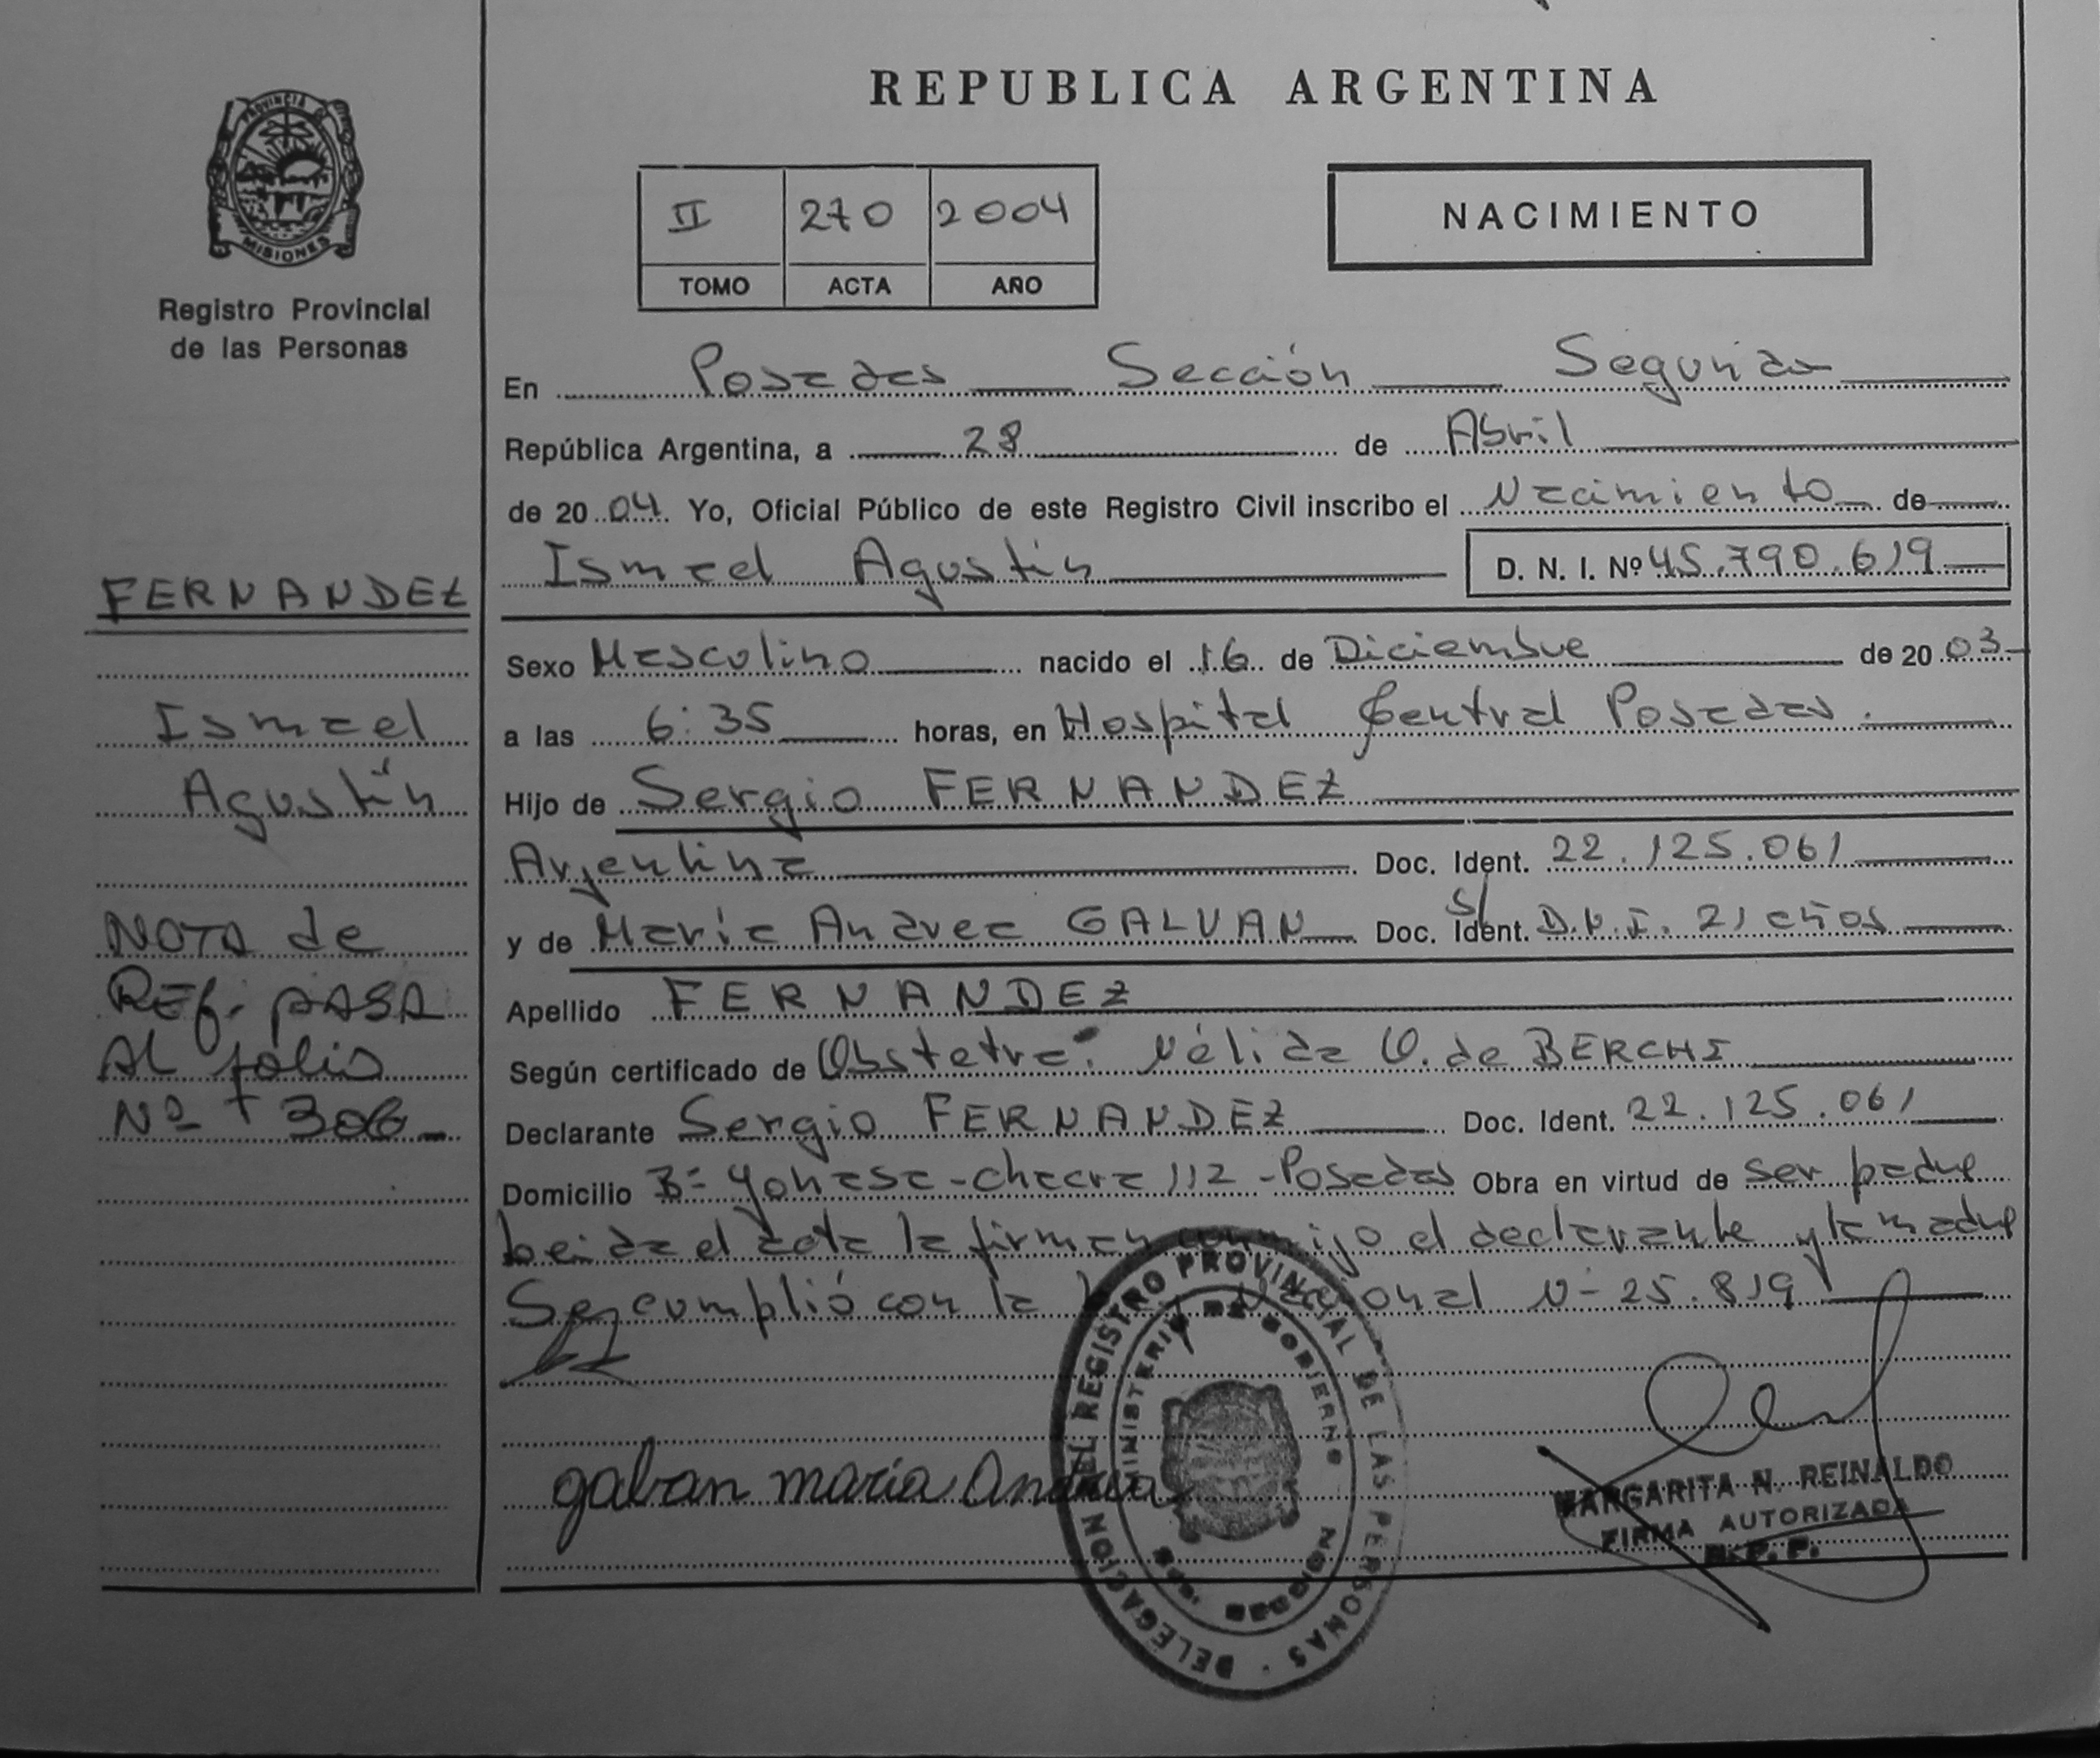 REPUBLICA ARGENTINA
PROVINCIA DE
MISIONES
Registro Provincial
de las Personas
II 270 2004
TOMO ACTA AÑO
NACIMIENTO
En Posadas Sección Segunda
República Argentina, a 28 de Abril
de 2004 Yo, Oficial Público de este Registro Civil inscribo el Nacimiento de
Ismael Agustín D. N. I. Nº 45.790.619
Sexo Masculino nacido el 16 de Diciembre de 2003
a las 6:35 horas, en Hospital Central Posadas.
Hijo de Sergio FERNANDEZ
Argentina Doc. Ident. 22.125.061
y de María Andrea GALVAN Doc. Ident. s/ D.N.I. 21 años
Apellido FERNANDEZ
Según certificado de Obstetra: Nélida O. de BERCHI
Declarante Sergio FERNANDEZ Doc. Ident. 22.125.061
Domicilio Bº Yohasa - Chacra 112 - Posadas Obra en virtud de ser padre
Leida el acta la firman conmigo el declarante y la madre
Se cumplió con la Nacional Nº 25.819
FERNANDEZ
Ismael
Agustín
NOTA de
REf. pASA
Al folio
Nº 306
galvan maria Andrea
DELEGACION EL REGISTRO PROVINCIAL DE LAS PERSONAS
MINISTERIO DE GOBIERNO
MISIONES
MARGARITA N. REINALDO
FIRMA AUTORIZADA
R. P. P.